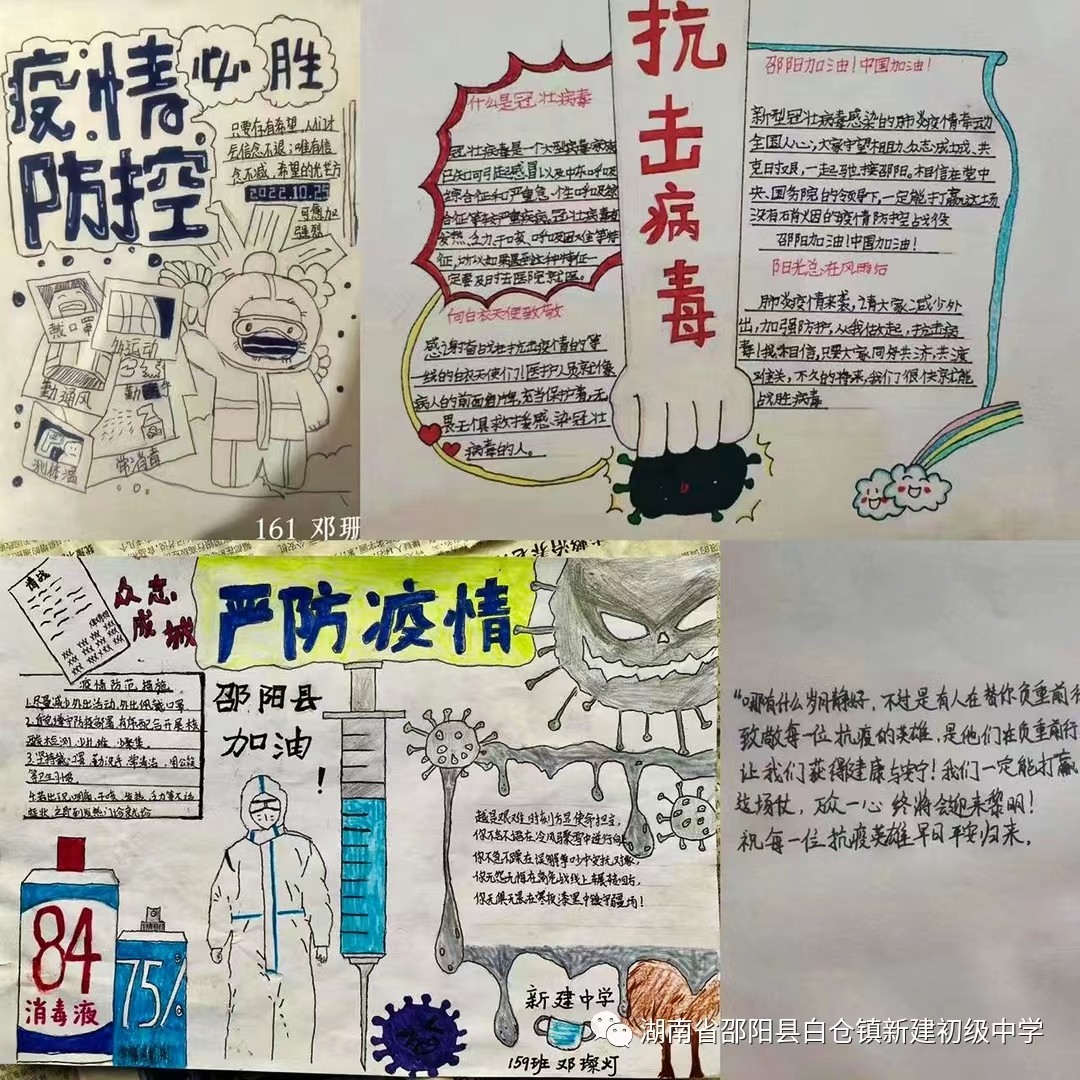 疫情必胜
防控
只要存有希望,人们才
2022.10.25
戴口罩
勤通风
测体温
常消毒
161 邓珊
抗击病毒
什么是冠壮病毒
冠壮病毒是一个大型病毒家族
已知可引起感冒以及中东呼吸
综合征和严重急性呼吸综
合征等较严重疾病。冠壮病毒有
发热、乏力、干咳、呼吸困难等特
征,所以如果遇到这种特征一
定要及时去医院就医。
向白衣天使致敬
感谢奋战在抗击疫情的第
一线的白衣天使们!医护人员就像
病人的前面盾牌,充当保护着,无
畏无惧救护感染冠壮
病毒的人。
邵阳加油!中国加油!
新型冠壮病毒感染的肺炎疫情牵动
全国人心,大家守望相助、众志成城、共
克时艰,一起驰援邵阳。相信在党中
央、国务院的领导下,一定能打赢这场
没有硝烟的疫情防控战役
邵阳加油!中国加油!
阳光总在风雨后
肺炎疫情来袭,请大家减少外
出,加强防护,从我做起,抗击病
毒!我相信,只要大家同舟共济,共渡
难关,不久的将来,我们很快就能
战胜病毒
众志
成城
严防疫情
邵阳县
加油!
疫情防范措施
1.尽量减少外出活动,外出佩戴口罩
3.坚持戴口罩、勤洗手、常清洁、用公筷
等卫生习惯
84
消毒液
75%
越是艰难时刻方显使命担当,
新建中学
159班 邓璨灯
“哪有什么岁月静好,不过是有人在替你负重前行
致敬每一位抗疫的英雄,是他们在负重前行
让我们获得健康与安宁!我们一定能打赢
这场仗,万众一心 终将会迎来黎明!
祝每一位抗疫英雄早日平安归来。
湖南省邵阳县白仓镇新建初级中学